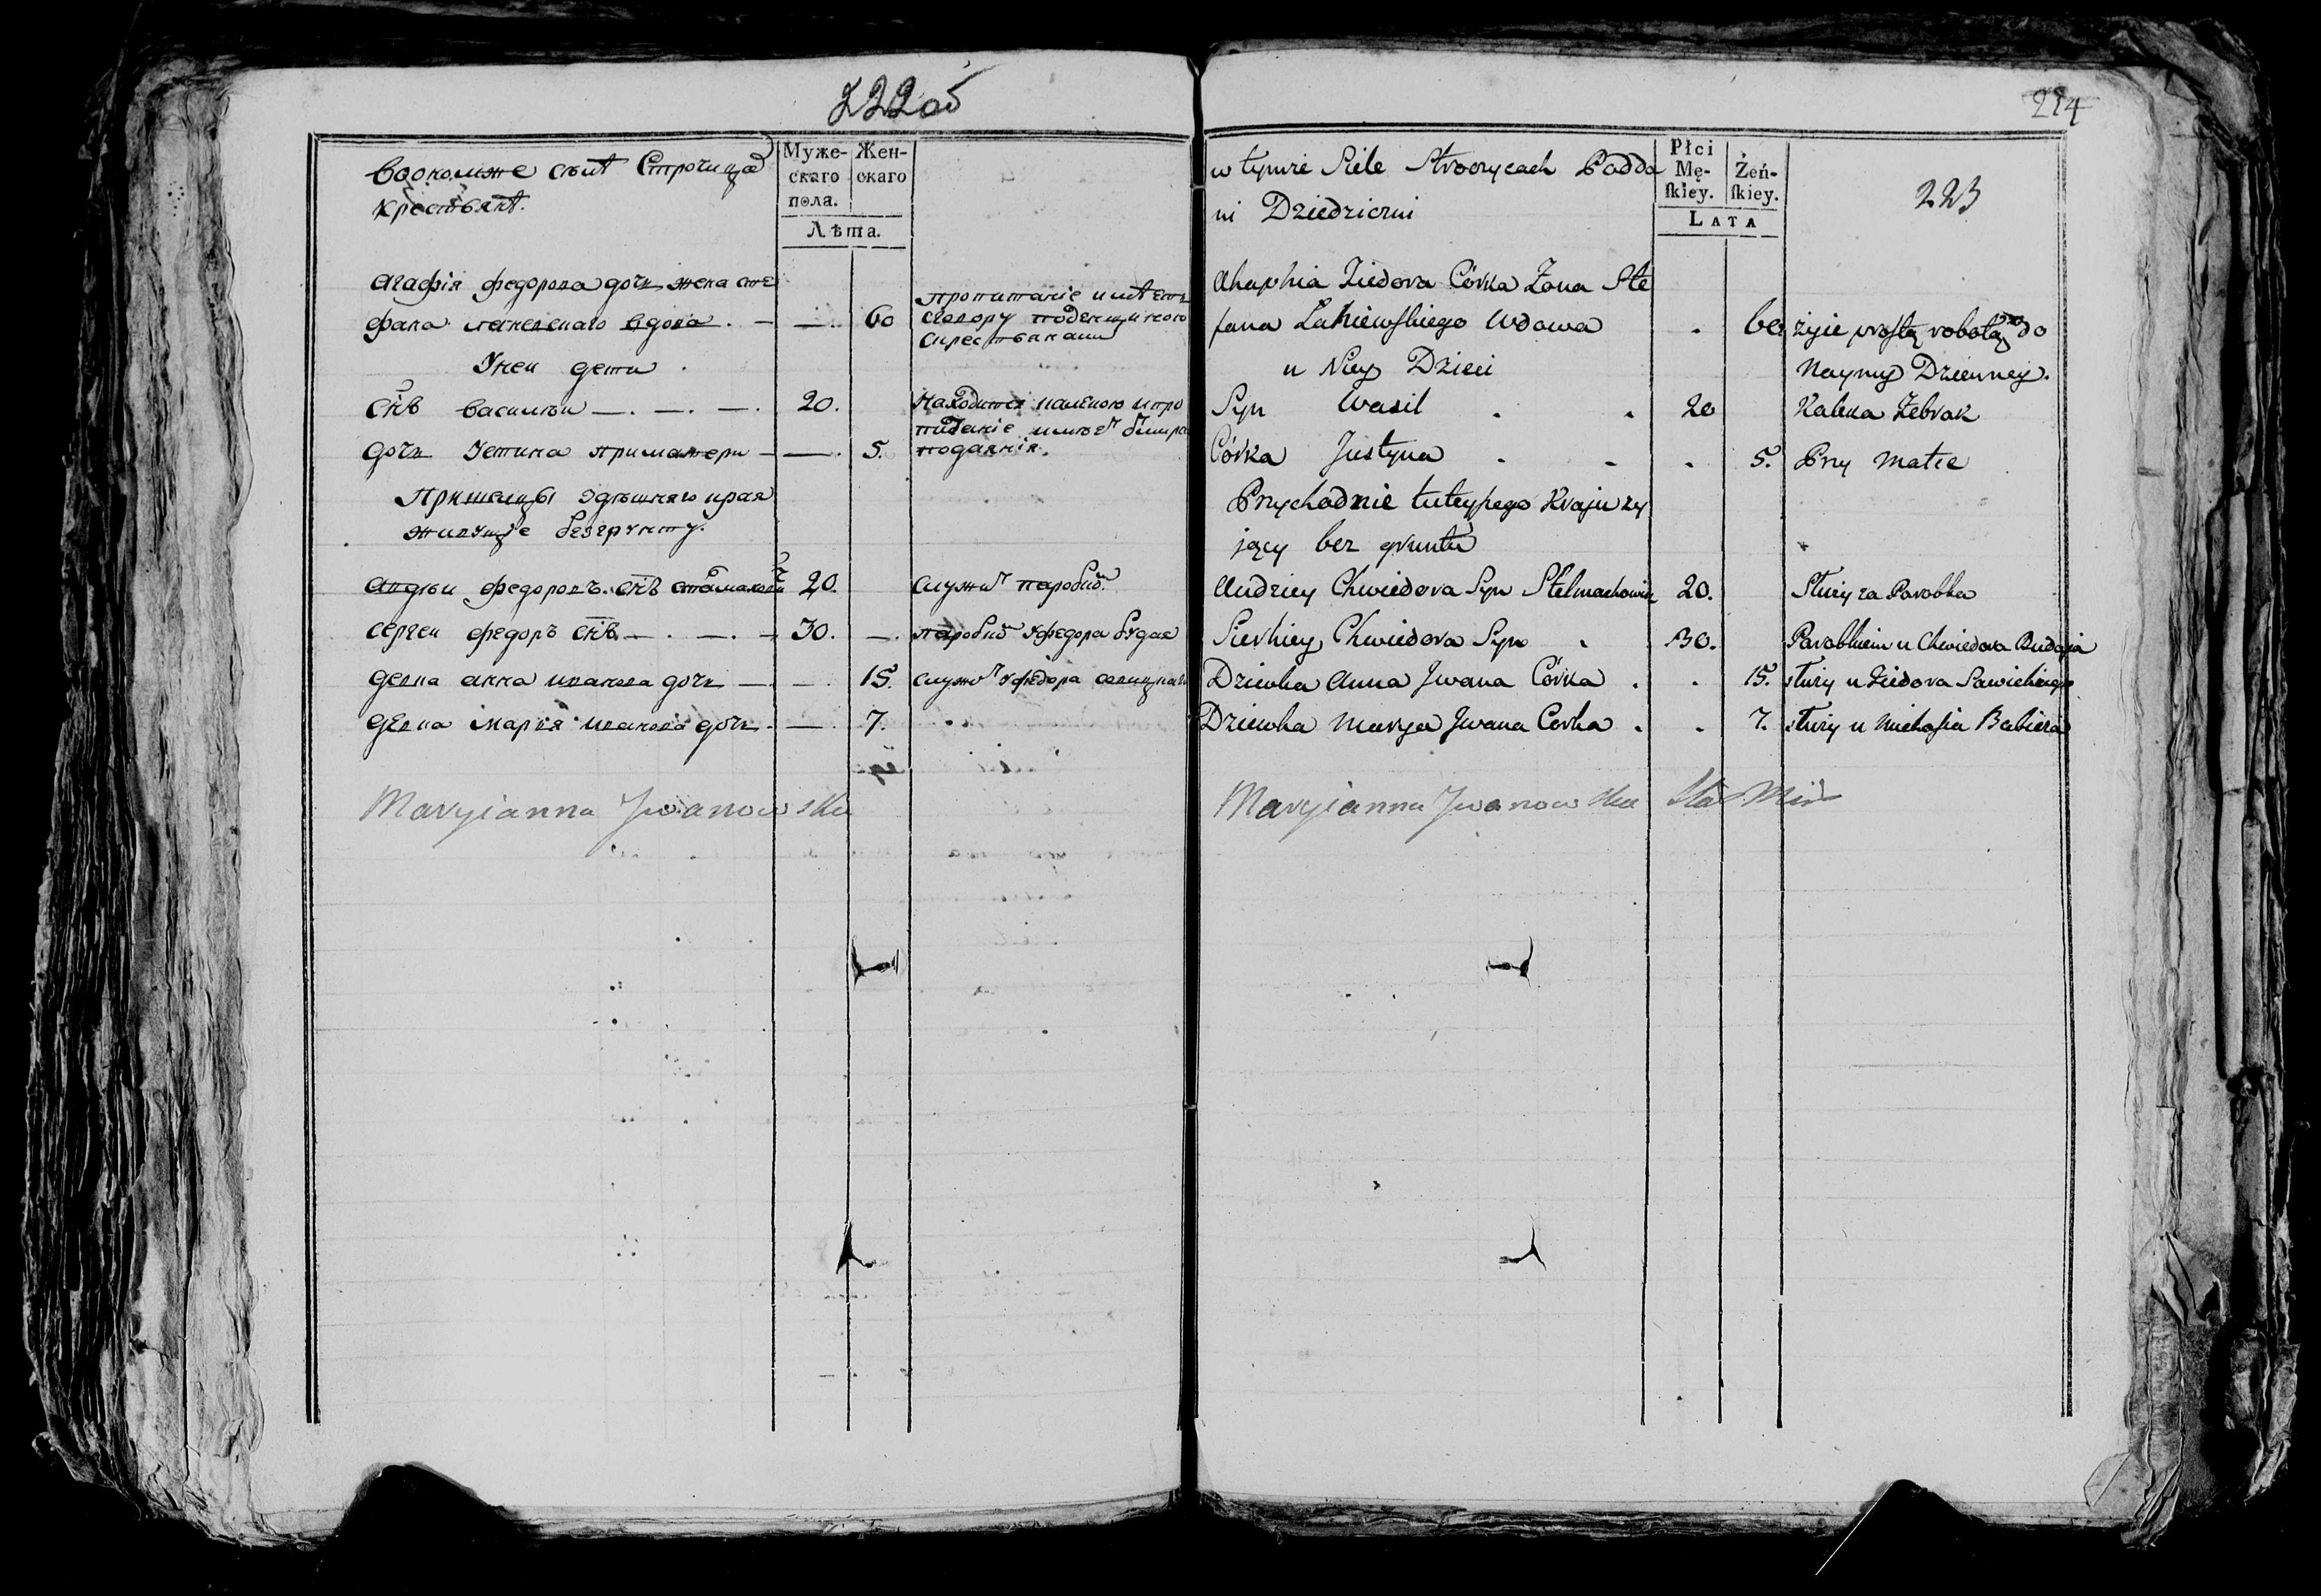 222об
Воономже сътъ Строчицѣ
крестьянъ.
Муже-
скаго
пола.
Жен-
скаго
Лѣта.
Агафія федорова дочь жена сте
фана вдова. — — 60
пропитаніе имѣетъ
У неи дети
снъ василеи —. —. —. 20.
дочь Устина приматери — —. 5.
Находится калекою и про
подаянія.
Пришелцы здешняго края
живущіе безгрунту.
Андреи федоровъ снъ 20. служит паробко
сергеи федоръ снъ —. —. — 30. —. паробко Уфедора будая
девка анна иванова дочь — — 15. служит Уфедора
девка марья иванова дочь. —. 7.
Maryianna Jwanowska
224
223
w tymże Siele Stroczycach Podda
ni Dziedziczni
Płci
Mę-
ſkiey.
Żeń-
ſkiey.
LATA
Ahaphia Fiedora Córka Żona Ste
fana Wdowa . 60 żyie prostą robotą do
Naymy Dzienney.
u Niey Dzieci
Syn Wasil . . 20 Kaleka Żebrak
Córka Justyna . - . 5. Przy Matce
Przychodnie tuteyszego Kraju ży
jący bez gruntu
Andziey Chwiedora Syn Stelmachowicz 20. Służy za Parobka
Sierhiey Chwiedora Syn . 30. Parobkiem u Chwiedora Budaja
Dziewka Anna Jwana Córka . . 15. służy u Fiedora Sawickiego
Dziewka Marya Jwana Corka . . 7. służy u Michasia Babiera
Maryianna Jwanowska